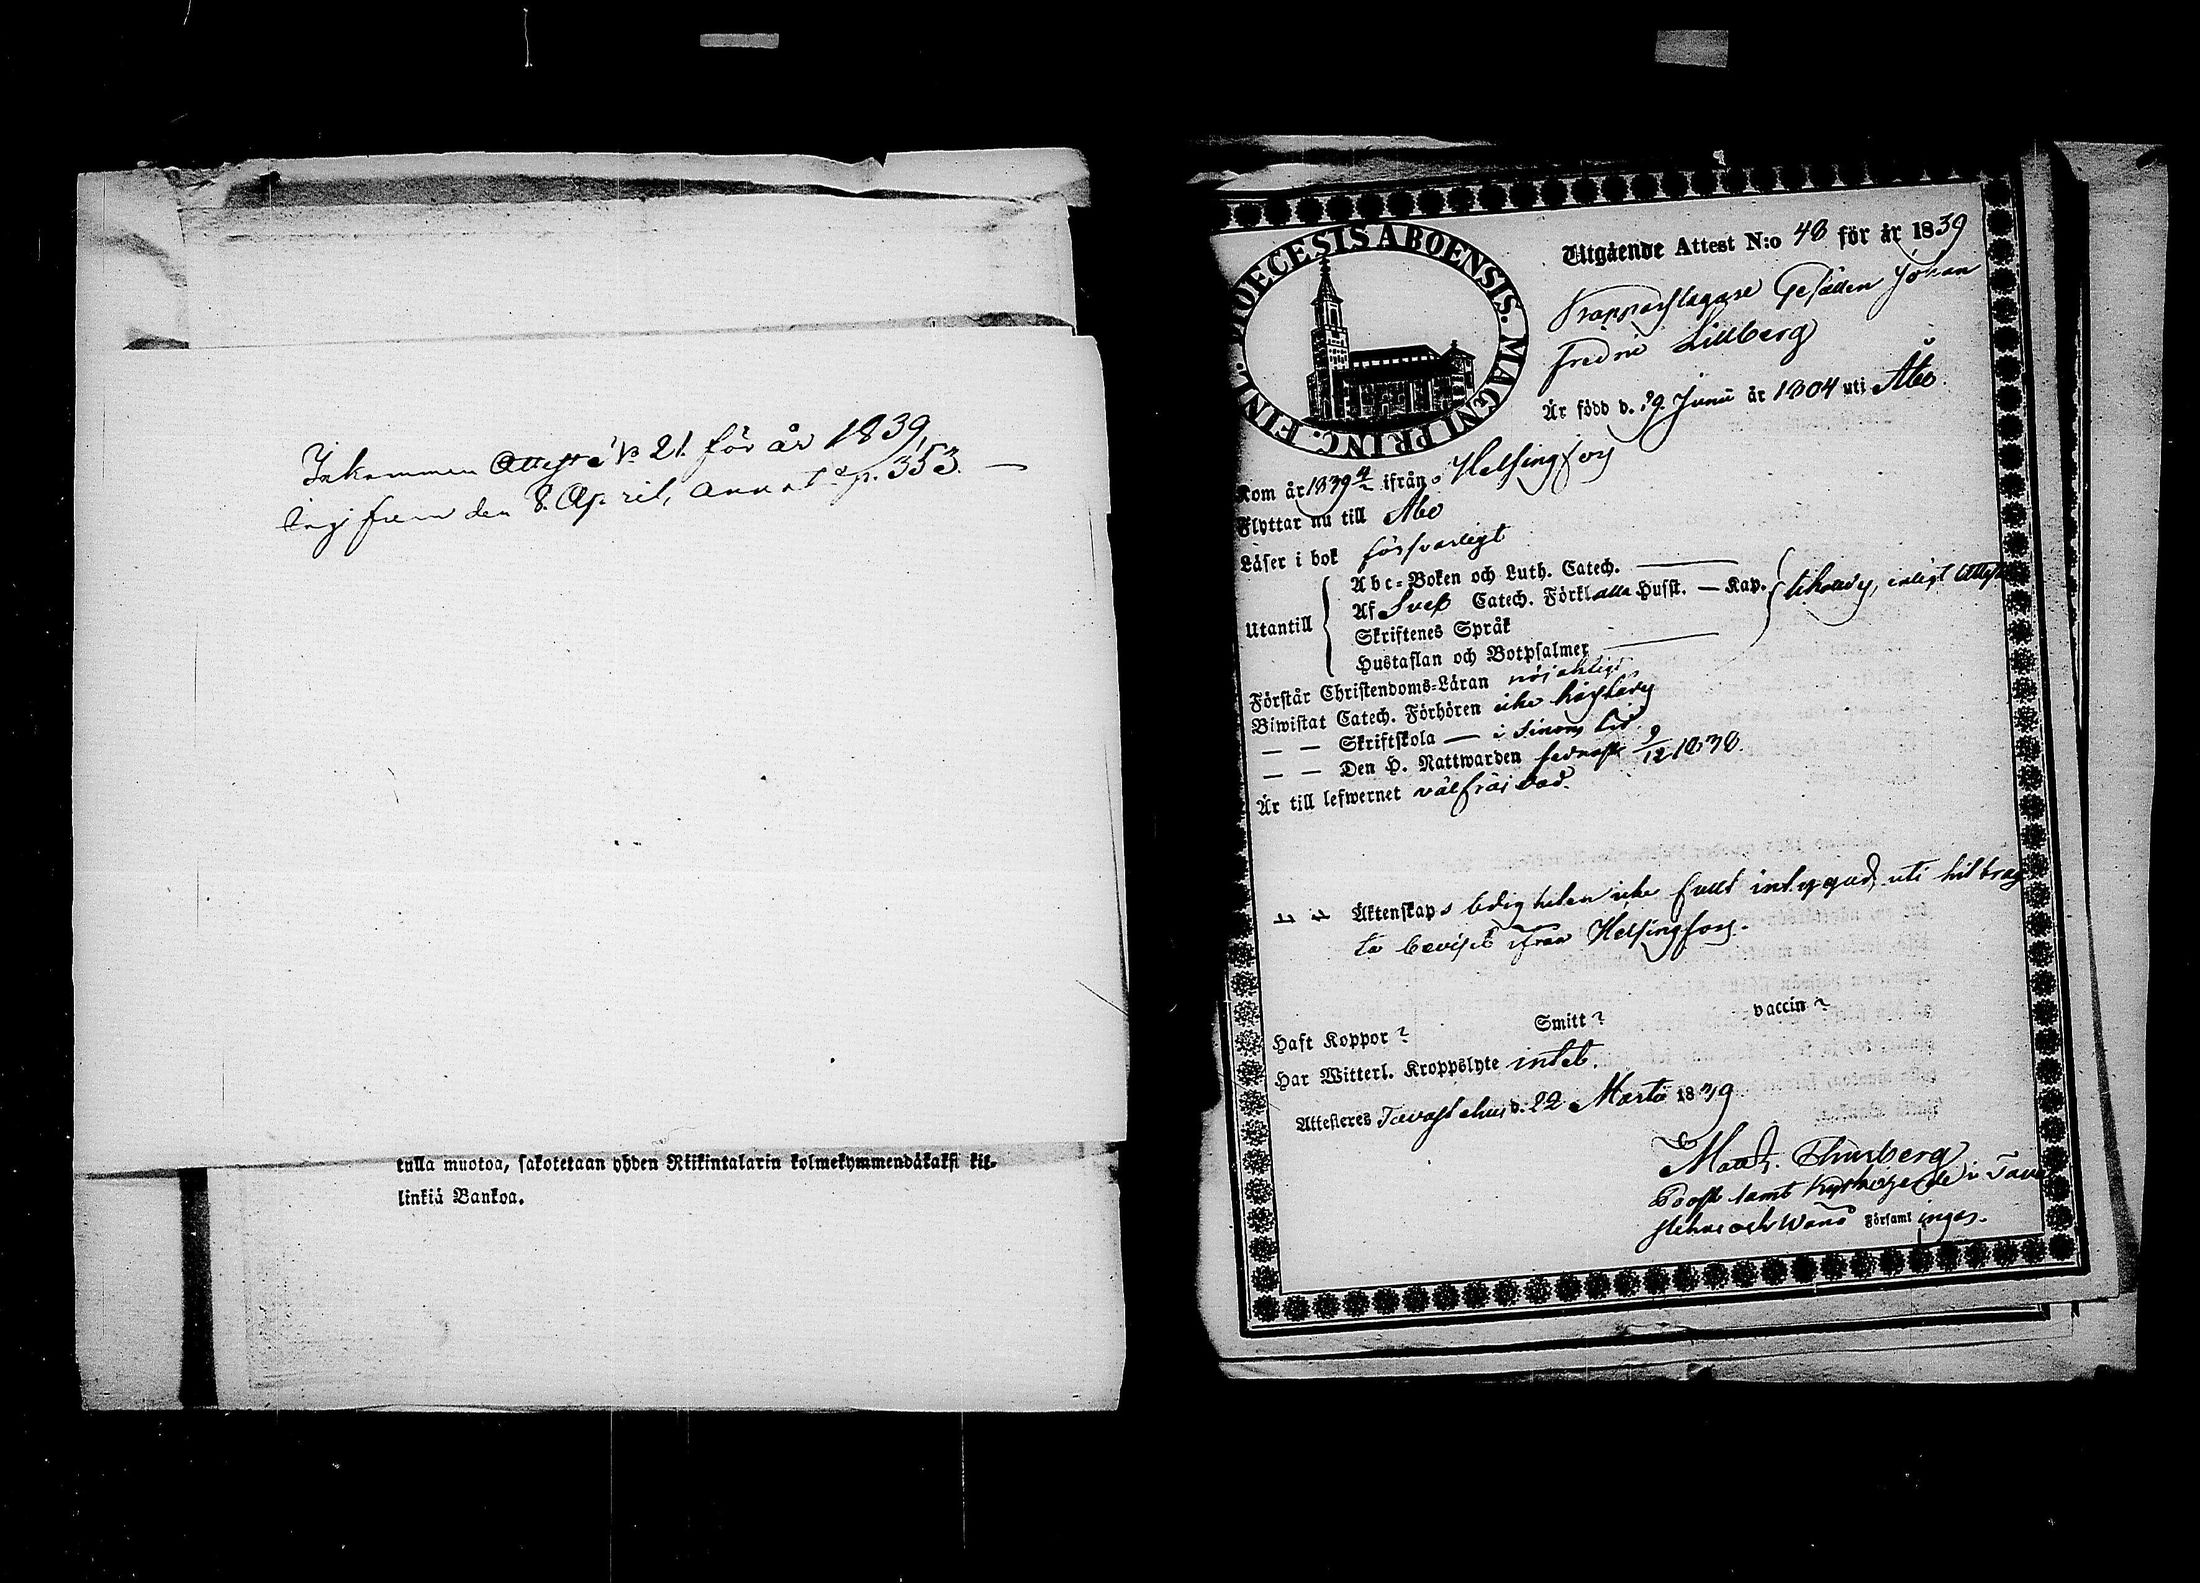 Inkommen Attest No 21. för år 1839,
ingifven den 8. April, annot. p. 353. —
tulla muotoa, sakotetaan yhden Riikintalarin kolmekymmendäkaksi kil-
linkiä Bankoa.
DIOECESIS ABOENSIS. MAGNI PRINC. FINL.
Utgående Attest N:o 48 för år 1839
Kopparslagare Gesällen Johan
Fredric Lillberg
Är född d. 29. Junii år 1804 uti Åbo
Kom år 1839 ifrån Helsingfors
Flyttar nu till Åbo
Läser i bok försvarligt
Abc-Boken och Luth. Catech. —
Utantill Af Sveb. Catech. Förkl. alla Husst. — Kap. likaledes, enligt Attest
Skriftenes Språk
Hustaflan och Botpsalmer —
Förstår Christendoms-Läran nöjaktigt
Biwistat Catech. Förhören icke härstädes
— — Skriftskola — i sinom tid
— — Den H. Nattwarden sednast 9/12 1838.
Är till lefwernet välfräjdad.
Äktenskaps ledigheten icke fullt intygad, uti hit brag-
ta beviset ifrån Helsingfors.
Haft Koppor ? Smitt ? vaccin ?
Har Witterl. Kroppslyte intet.
Attesteres Tavastehus d. 22 Martii 1839
Matth. Thurberg
Probst samt Kyrkoherde i Tava-
stehus och Wånå Församlingar.